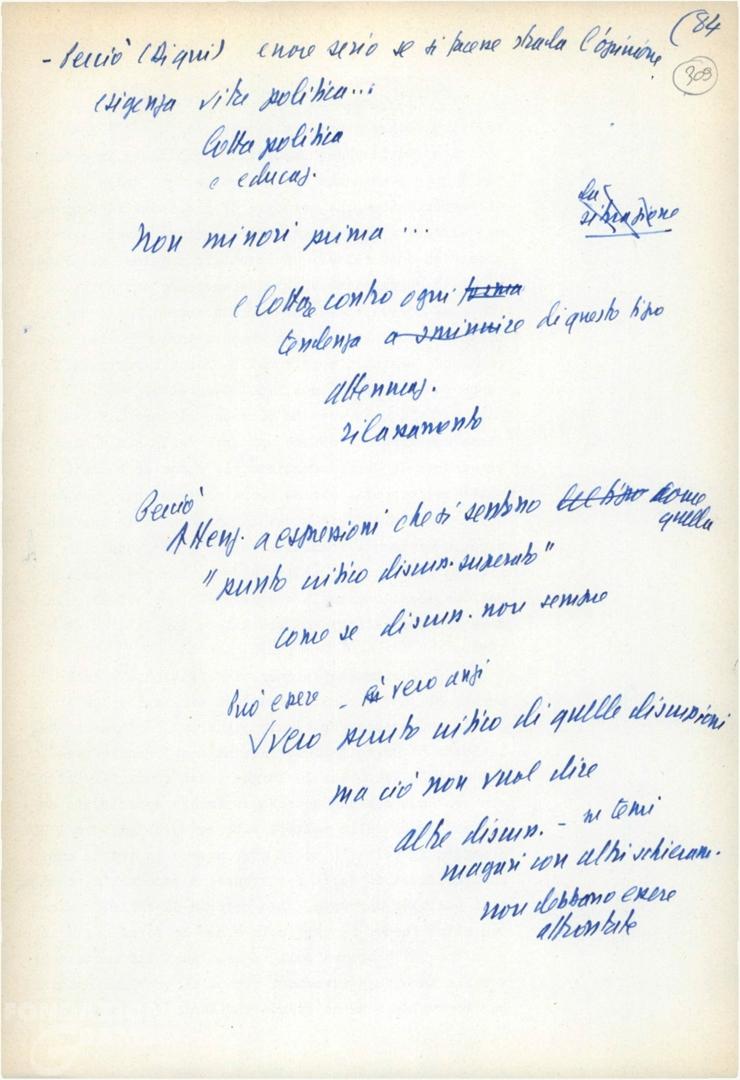 (84
309
- Perciò (di qui) errore serio se si facesse strada l'opinione
esigenza vita politica...
lotta politica
e educaz.
da
situazione
Non minori prima ...
e lottare contro ogni forma
tendenza a sminuire di questo tipo
attenuaz.
rilassamento
Perciò
Attenz. a espressioni che si sentono del tipo come
quella
"punto critico discuss. superato"
come se discuss. non sempre
Può essere - è vero anzi
vero punto critico di quelle discussioni
ma ciò non vuol dire
altre discuss. - su temi
magari con altri schieram.
non debbano essere
affrontate